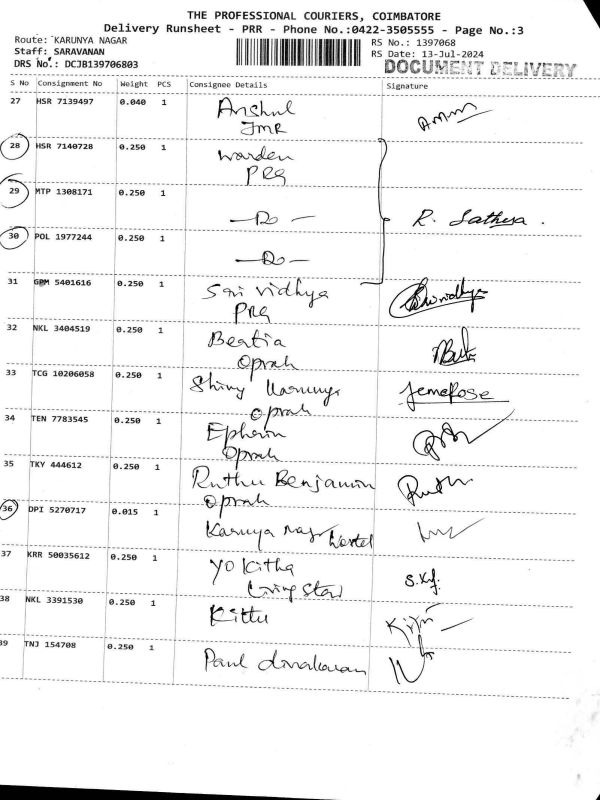 THE PROFESSIONAL COURIERS, COIMBATORE
Delivery Runsheet - PRR - Phone No.:0422-3505555 - Page No.:3
Route: KARUNYA NAGAR
Staff: SARAVANAN
DRS No.: DCJB139706803
RS No.: 1397068
RS Date: 13-Jul-2024
DOCUMENT DELIVERY
S No Consignment No Weight PCS Consignee Details Signature
27 HSR 7139497 0.040 1 Anshul
JMR
28 HSR 7140728 0.250 1 warden
PRG
29 MTP 1308171 0.250 1 —Do— R. Sathya.
30 POL 1977244 0.250 1 —Do—
31 GPM 5401616 0.250 1 Sai vidhya
PRG
32 NKL 3404519 0.250 1 Beatia
Oprah
33 TCG 10206058 0.250 1 Shiny Jemerose
oprah
34 TEN 7783545 0.250 1
Oprah
35 TKY 444612 0.250 1 Ruthu Benjamin Ruth
oprah
36 DPI 5270717 0.015 1 Karunya Nagr hostel
37 KRR 50035612 0.250 1 Yo Kitha
Living Star
38 NKL 3391530 0.250 1 Kittu
39 TNJ 154708 0.250 1 Paul dinakaran